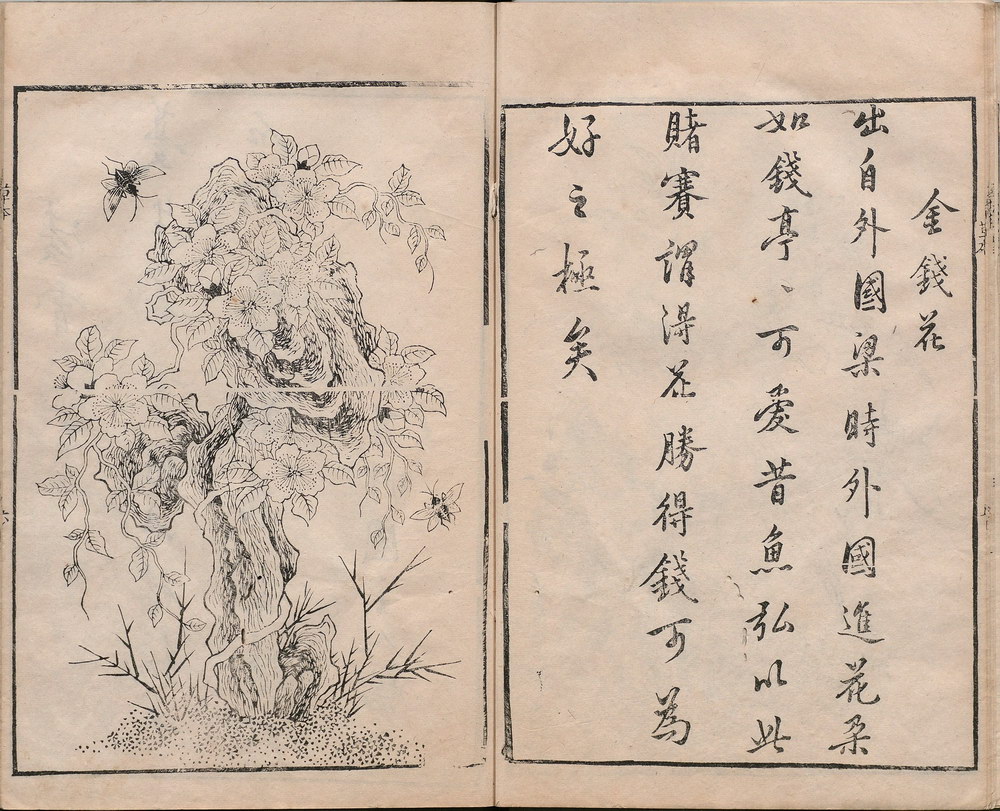 金錢花
出自外國梁時外國進花朵
如錢亭、可愛昔魚弘以此
賭賽謂得花勝得錢可為
好之極矣